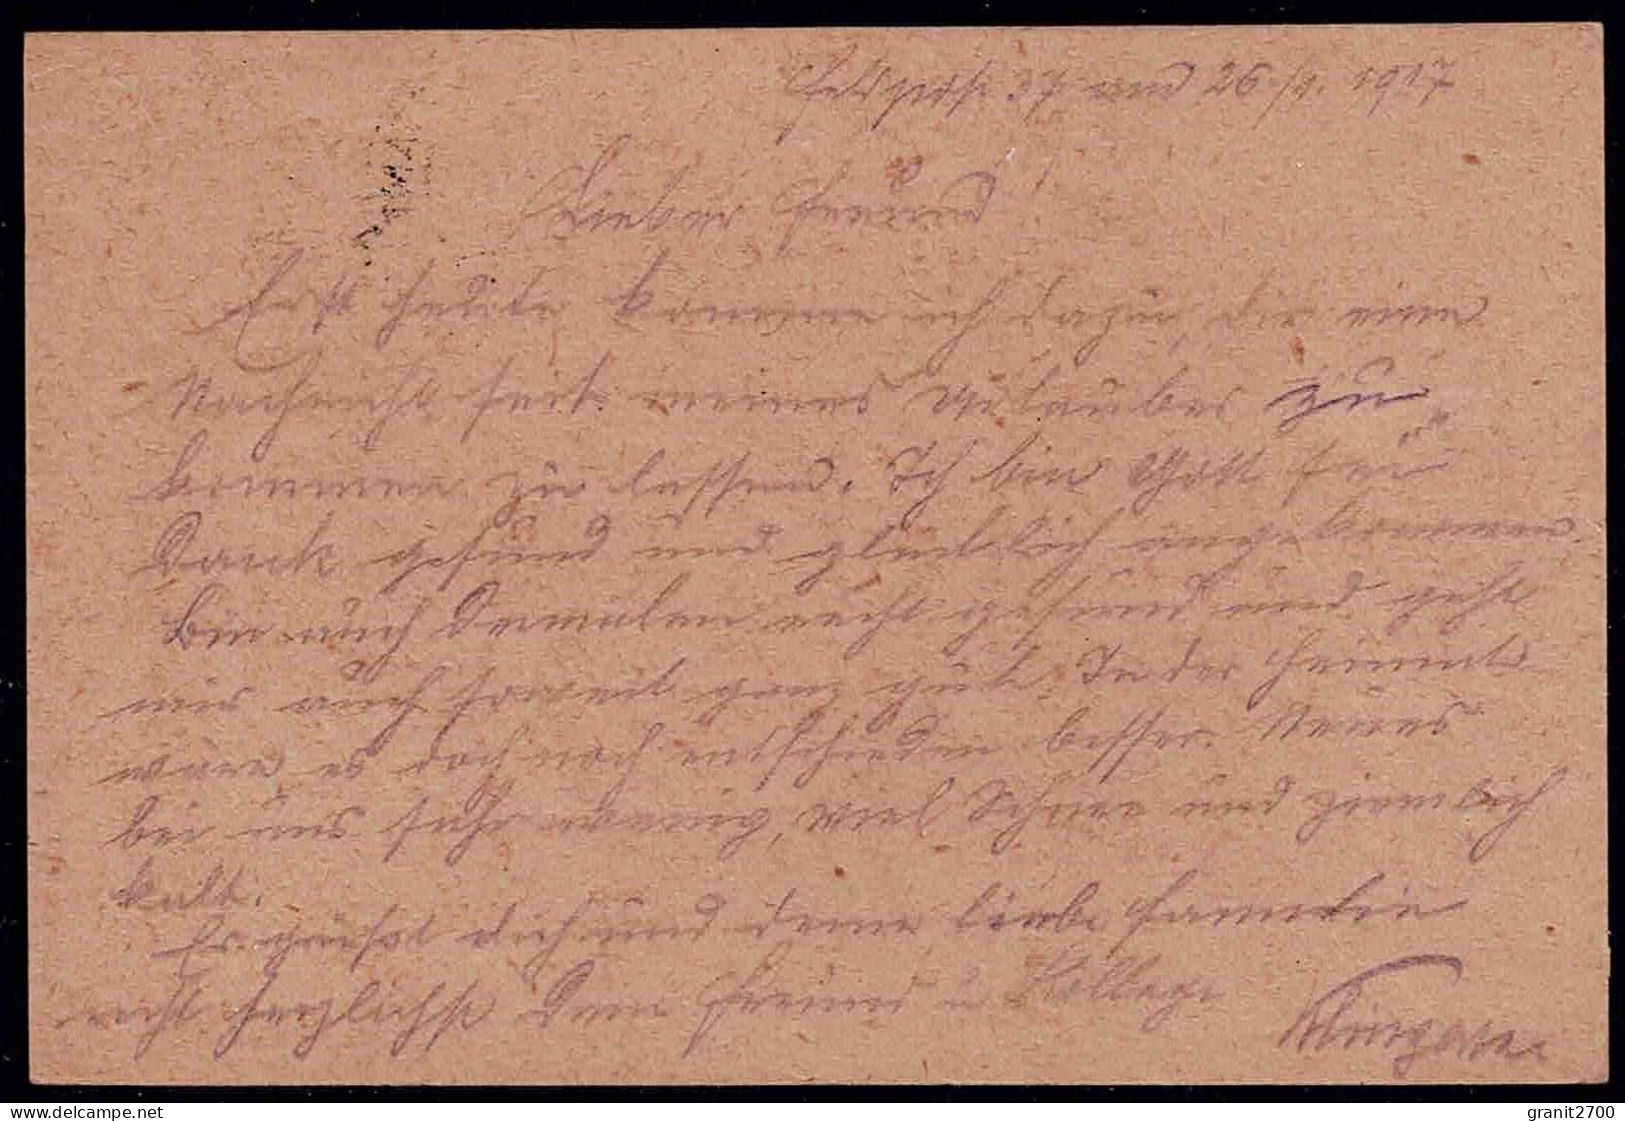 Feldpost 37 am 26/1. 1917
Lieber Freund!
Erst heute komme ich dazu, dir eine
Nachricht seit meines Urlaubes zu
kommen zu lassen. Ich bin Gott sei
Dank gesund und glücklich angekommen.
Bin auch dermalen recht gesund und geht
mir auch soweit ganz gut. In der Heimat
wäre es doch noch entschieden besser. Neues
bei uns sehr wenig, viel Schnee und ziemlich
kalt.
Es grüßt dich und deine liebe Familie
recht herzlichst Dein Freund u Kollege
delcampe.net
granit2700